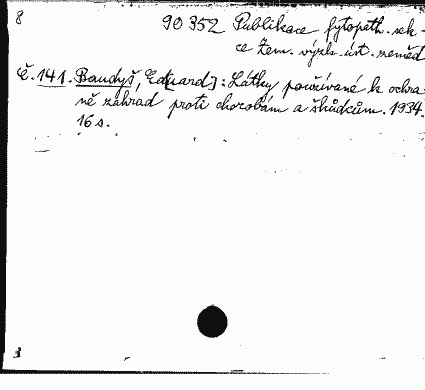 8 90352 Publikace fytopath. sek-
ce Zem. výzk. úst. zeměd
Č. 141. Baudyš, Ed[uard]: Látky používané k ochra-
ně zahrad proti chorobám a škůdcům. 1934.
16 s.